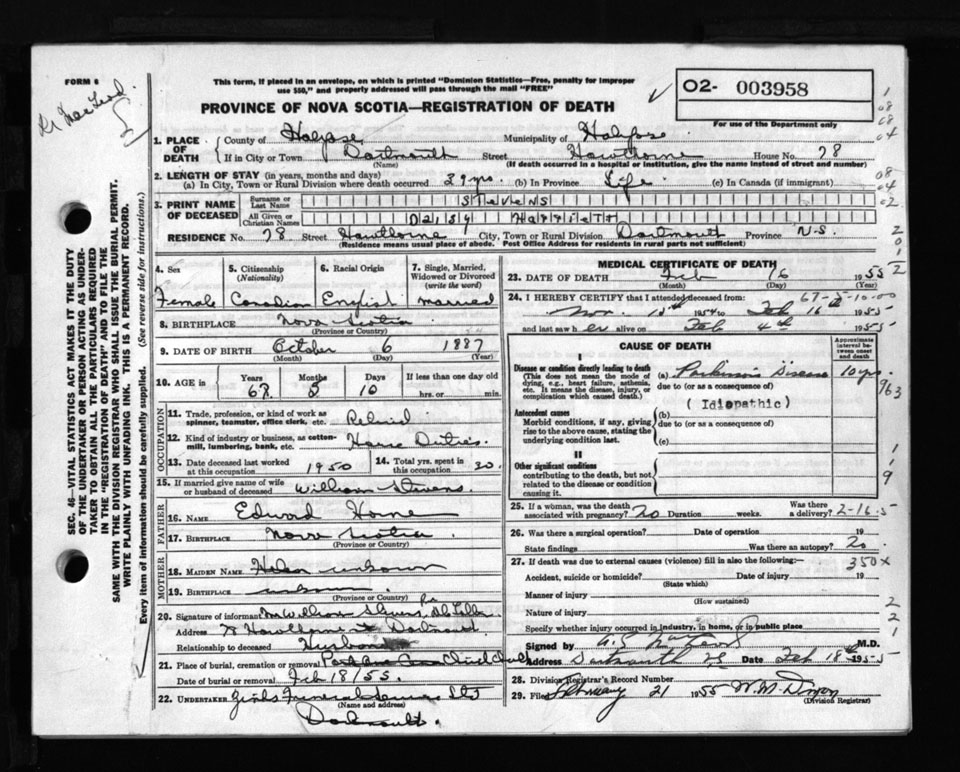 FORM 6
This form, if placed in an envelope, on which is printed "Dominion Statistics—Free, penalty for improper
use $50," and properly addressed will pass through the mail "FREE"
PROVINCE OF NOVA SCOTIA—REGISTRATION OF DEATH
O2- 003958
For use of the Department only
1. PLACE OF DEATH
County of Halifax Municipality of Halifax
If in City or Town Dartmouth Street Hawthorne House No. 78
(Name) (If death occurred in a hospital or institution, give the name instead of street and number)
2. LENGTH OF STAY (in years, months and days)
(a) In City, Town or Rural Division where death occurred 39 yrs. (b) In Province Life (c) In Canada (if immigrant)
3. PRINT NAME OF DECEASED
Surname or Last Name STEVENS
All Given or Christian Names Daisy Harriett
RESIDENCE No. 78 Street Hawthorne City, Town or Rural Division Dartmouth Province N.S.
(Residence means usual place of abode. Post Office Address for residents in rural parts not sufficient)
4. Sex Female
5. Citizenship (Nationality) Canadian
6. Racial Origin English
7. Single, Married, Widowed or Divorced (write the word) married
8. BIRTHPLACE Nova Scotia
(Province or Country)
9. DATE OF BIRTH October 6 1887
(Month) (Day) (Year)
10. AGE in Years Months Days If less than one day
67 5 10 hrs. or min.
OCCUPATION
11. Trade, profession, or kind of work as
spinner, teamster, office clerk, etc. Retired
12. Kind of industry or business, as cotton-
mill, lumbering, bank, etc. House Duties
13. Date deceased last worked
at this occupation 1950
14. Total yrs. spent in
this occupation 30
15. If married give name of wife
or husband of deceased William Stevens
FATHER
16. NAME Edward Horne
17. BIRTHPLACE Nova Scotia
(Province or Country)
MOTHER
18. MAIDEN NAME Helen unknown
19. BIRTHPLACE unknown
(Province or Country)
20. Signature of informant William Stevens
Address 78 Hawthorne St Dartmouth
Relationship to deceased Husband
21. Place of burial, cremation or removal
Date of burial or removal Feb 18/55
22. UNDERTAKER Funeral Ltd
(Name and address)
Dartmouth.
MEDICAL CERTIFICATE OF DEATH
23. DATE OF DEATH Feb 16 1955
(Month) (Day)
67-5-10-00
24. I HEREBY CERTIFY that I attended deceased from:
Nov. 1954 to Feb 16th 1955
and last saw her alive on Feb 4th 1955
CAUSE OF DEATH
Approximate interval between onset and death
I
Disease or condition directly leading to death
(This does not mean the mode of dying, e.g., heart failure, asthenia, etc. It means the disease, injury, or complication which caused death.)
(a) Parkinson's Disease 10 yrs.
due to (or as a consequence of)
963
(Idiopathic)
Antecedent causes
Morbid conditions, if any, giving rise to the above cause, stating the underlying condition last.
(b)
due to (or as a consequence of)
(c)
II
Other significant conditions
contributing to the death, but not related to the disease or condition causing it.
25. If a woman, was the death
associated with pregnancy? no Duration weeks. Was there a delivery? 2-16-5
26. Was there a surgical operation? Date of operation 19
State findings Was there an autopsy? no
27. If death was due to external causes (violence) fill in also the following:- 350x
Accident, suicide or homicide? Date of injury 19
(State which)
Manner of injury
(How sustained)
Nature of injury
Specify whether injury occurred in industry, in home, or in public place
Signed by M.D.
Address Dartmouth NS Date Feb 18th 1955
28. Division Registrar's Record Number
29. Filed February 21 1955 W. M. Dixon
(Division Registrar)
SEC. 46—VITAL STATISTICS ACT MAKES IT THE DUTY
OF THE UNDERTAKER OR PERSON ACTING AS UNDER-
TAKER TO OBTAIN ALL THE PARTICULARS REQUIRED
IN THE "REGISTRATION OF DEATH" AND TO FILE THE
SAME WITH THE DIVISION REGISTRAR WHO SHALL ISSUE THE BURIAL PERMIT.
WRITE PLAINLY WITH UNFADING INK. THIS IS A PERMANENT RECORD.
Every item of information should be carefully supplied. (See reverse side for instructions.)